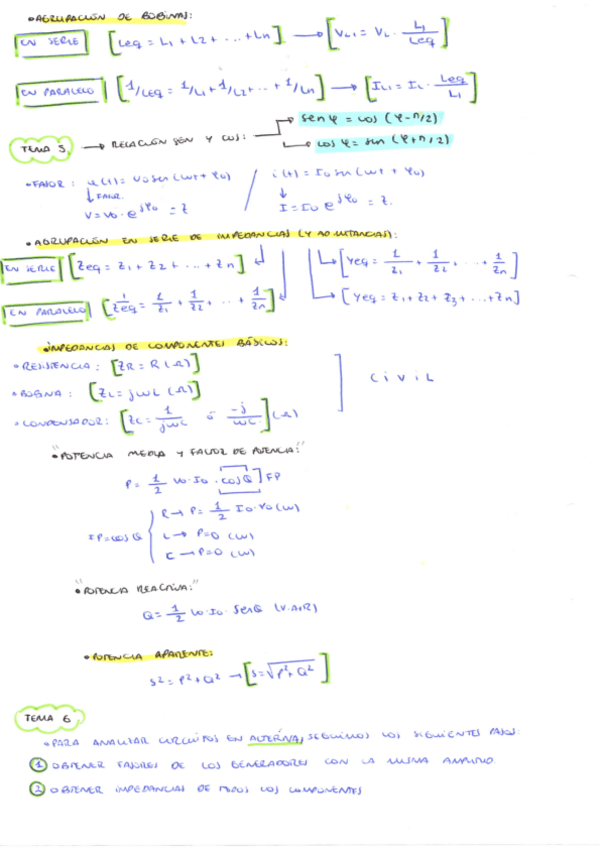 • AGRUPACIÓN DE BOBINAS:
EN SERIE [Leq = L1 + L2 + ... + Ln] → [VL1 = VL · L1/Leq]
EN PARALELO [1/Leq = 1/L1 + 1/L2 + ... + 1/Ln] → [IL1 = IL · Leq/L1]
TEMA 5 → RELACIÓN SEN Y COS: → sen φ = cos (φ - π/2)
→ cos φ = sen (φ + π/2)
• FASOR: u(t) = V0 sen (ωt + φ0) / i(t) = I0 sen (ωt + φ0)
↓ FASOR ↓
V = V0 · e^jφ0 = Z I = I0 e^jφ0 = Z.
• AGRUPACIÓN EN SERIE DE IMPEDANCIAS (Y ADMITANCIAS):
EN SERIE [Zeq = Z1 + Z2 + ... + Zn] ↲ ↳ [Yeq = 1/Z1 + 1/Z2 + ... + 1/Zn]
EN PARALELO [1/Zeq = 1/Z1 + 1/Z2 + ... + 1/Zn] ↲ ↳ [Yeq = Z1 + Z2 + Z3 + ... + Zn]
• IMPEDANCIAS DE COMPONENTES BÁSICOS:
• RESISTENCIA: [ZR = R (Ω)]
• BOBINA: [ZL = jωL (Ω)] CiViL
• CONDENSADOR: [ZC = 1/jωC ó -j/ωC] (Ω)
"• POTENCIA MEDIA Y FACTOR DE POTENCIA:"
P = 1/2 V0 · I0 · [cosθ] FP
R → P = 1/2 I0 · V0 (W)
FP = cos θ { L → P = 0 (W)
C → P = 0 (W)
"• POTENCIA REACTIVA:"
Q = 1/2 V0 · I0 · senθ (V.A.R)
• POTENCIA APARENTE:
S² = P² + Q² → [S = √P² + Q²]
TEMA 6
• PARA ANALIZAR CIRCUITOS EN ALTERNA, SEGUIMOS LOS SIGUIENTES PASOS:
1 OBTENER FASORES DE LOS GENERADORES CON LA MISMA
2 OBTENER IMPEDANCIAS DE TODOS LOS COMPONENTES